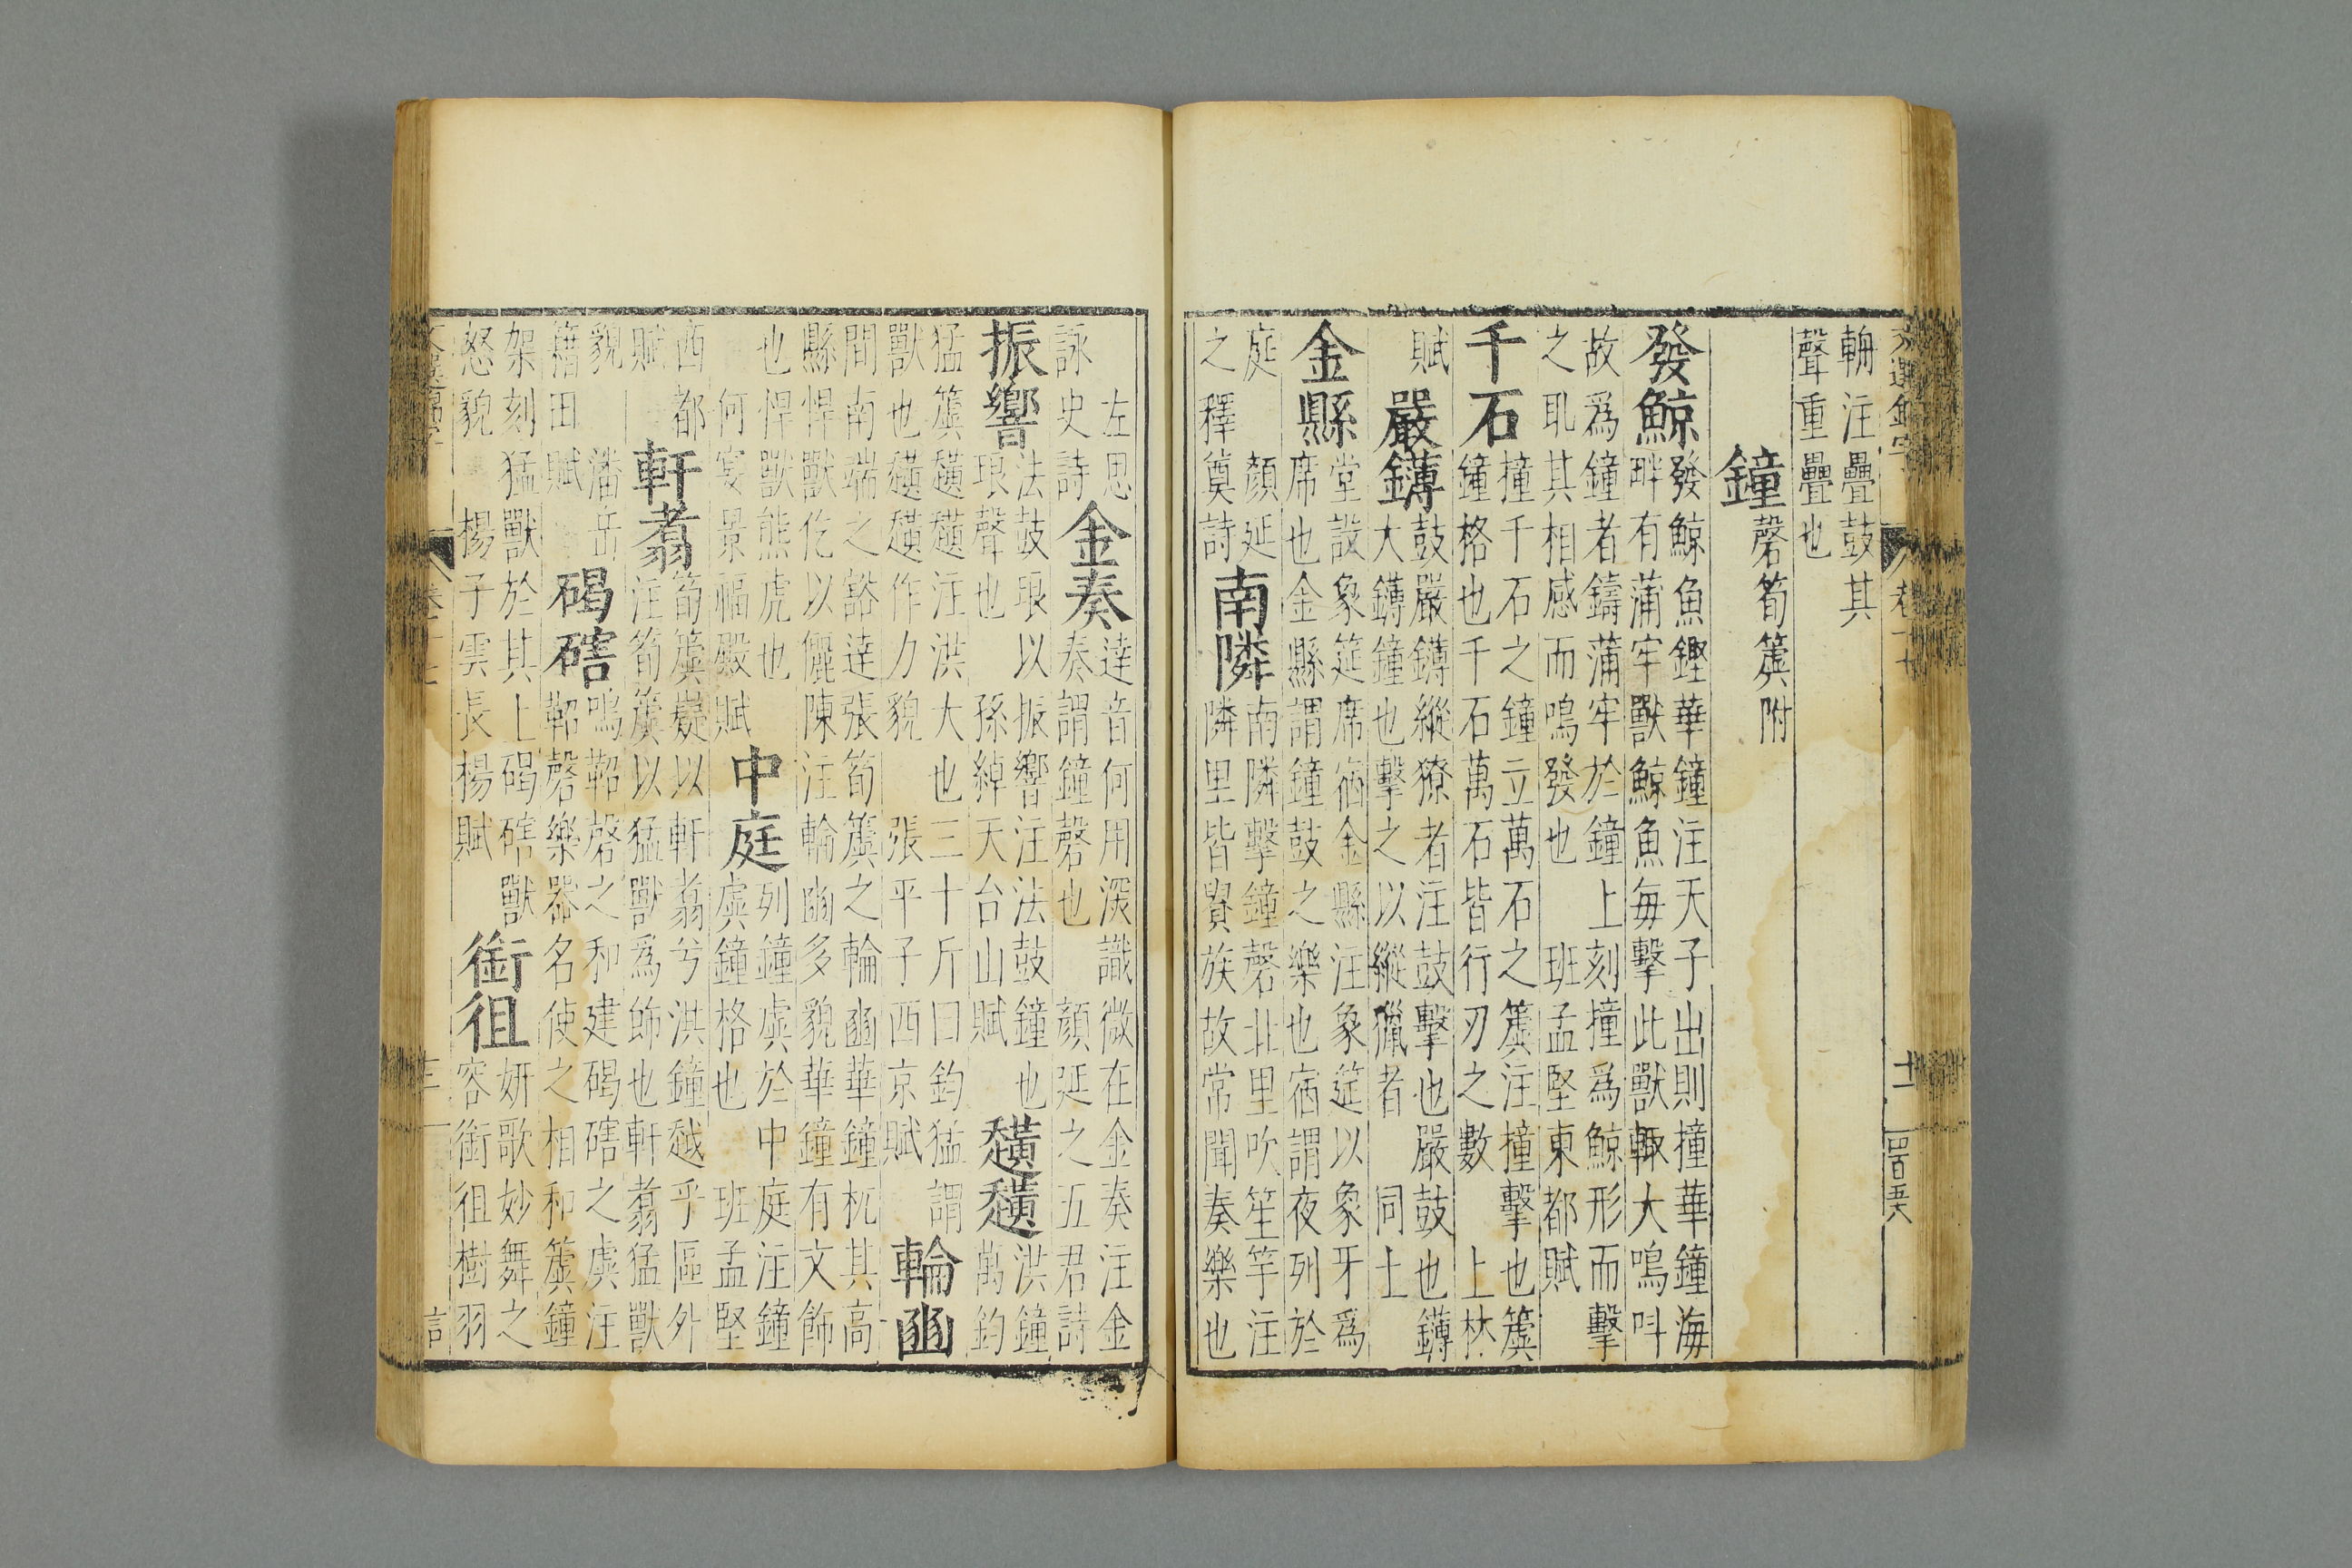 輣注疊鼓其
聲重疊也
鐘
磬筍簴附
發鯨
發鯨魚鏗華鐘注天子出則撞華鐘海
畔有蒲牢獸鯨魚毎擊此獸輙大鳴呌
故爲鐘者鑄蒲牢於鐘上刻撞爲鯨形而擊
之耴其相感而鳴發也　班孟堅東都賦
千石
撞千石之鐘立萬石之簴注撞擊也簴
鐘格也千石萬石皆行刃之數　上林
賦
嚴鏄
鼓嚴鏄縱獠者注鼓擊也嚴鼓也鏄
大鏄鐘也擊之以縱獵者　同上
金縣
堂設象筵席宿金縣注象筵以象牙爲
席也金縣謂鐘鼓之樂也宿謂夜列於
庭　顏延
之釋奠詩
南隣
南隣擊鐘磬北里吹笙竽注
隣里皆貴族故常聞奏樂也
左思
詠史詩
金奏
達音何用深識微在金奏注金
奏謂鐘磬也　顏延之五君詩
振響
法鼓琅以振響注法鼓鐘也
琅聲也　孫綽天台山賦
趪趪
洪鐘
萬鈞
猛簴趪趪注洪大也三十斤曰鈞猛謂
獸也趪趪作力貌　張平子西京賦
輪豳
間南端之豁達張筍簴之輪豳華鐘杌其高
縣悍獸仡以儷陳注輪豳多貌華鐘有文飾
也悍獸熊虎也
何宴景福殿賦
中庭
列鐘虡於中庭注鐘
虡鐘格也　班孟堅
西都
賦
軒翥
筍虡嶷以軒翥兮洪鐘越乎區外
注筍簴以猛獸爲飾也軒翥猛獸
貌　潘岳
籍田賦
碣磍
鳴鞀磬之和建碣磍之虡注
鞀磬樂器名使之相和簴鐘
架刻猛獸於其上碣磍獸
怒貌　楊子雲長楊賦
衙徂
妍歌妙舞之
容衙徂樹羽